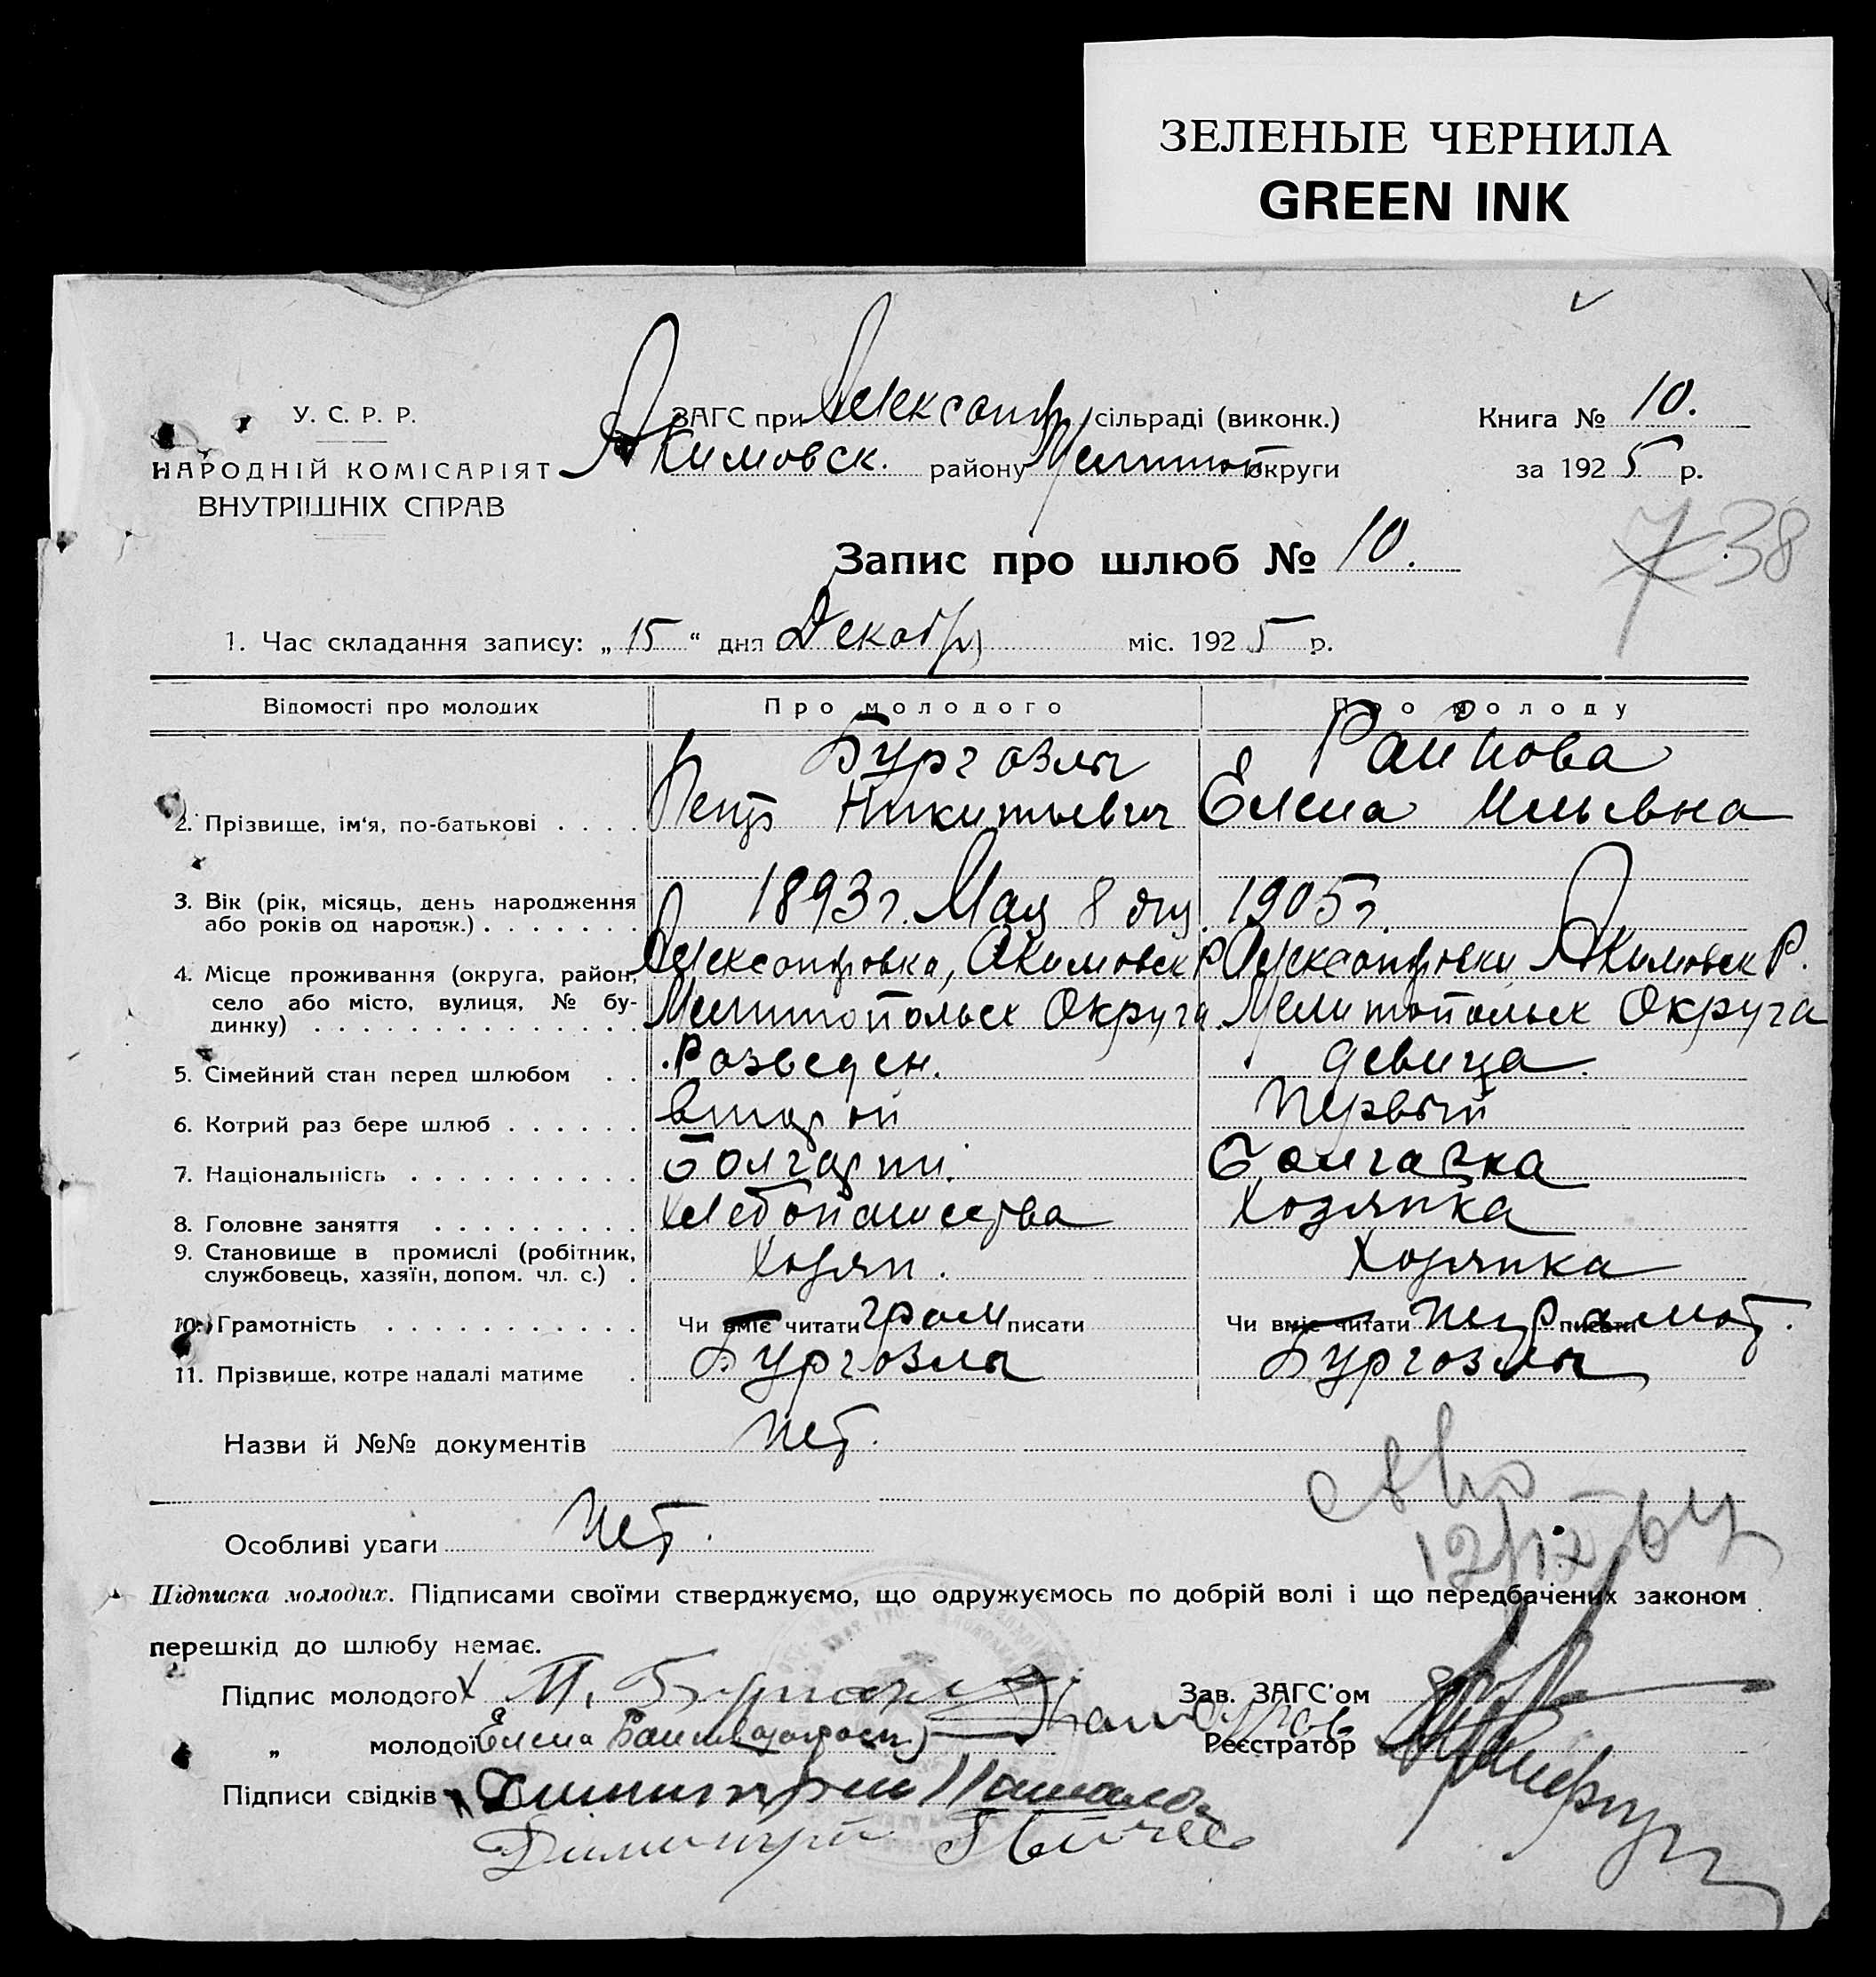 ЗЕЛЕНЫЕ ЧЕРНИЛА
GREEN INK
У. С. Р. Р.
НАРОДНІЙ КОМІСАРІЯТ
ВНУТРІШНІХ СПРАВ
ЗАГС при Александр сільраді (виконк.)
Акимовск. району Мелитоп округи
Книга № 10.
за 1925 р.
Запис про шлюб № 10.
7 38
1. Час складання запису: „15“ дня Декабр міс. 1925 р.
Відомості про молодих Про молодого Про молоду
Бургазлы Райнова
2. Прізвище, ім'я, по-батькові . . . . Петр Никитьевич Елена Ильевна
3. Вік (рік, місяць, день народження 1893 г. Мая 8 дня 1905 г.
або років од народж.) . . . . . . .
4. Місце проживання (округа, район, Александровка, Акимовск Р Александровки Акимовск Р.
село або місто, вулиця, № бу- Мелитопольск Округа Мелитопольск Округа
динку) . . . . . . . . . . . . . .
5. Сімейний стан перед шлюбом . . Розведен. девица.
6. Котрий раз бере шлюб . . . . . . второй Первый
7. Національність . . . . . . . . . . болгарин. болгарка
8. Головне заняття . . . . . . . . . Хлебопашества Хозяйка
9. Становище в промислі (робітник, Хозяин. Хозяйка
службовець, хазяїн, допом. чл. с.) .
10. Грамотність . . . . . . . . . . . Чи вміє читати грам писати Чи вміє читати писати
11. Прізвище, котре надалі матиме . Бургазлы Бургазлы
Назви й №№ документів нет.
Особливі уваги нет.
12/12-64
Підписка молодих. Підписами своїми стверджуємо, що одружуємось по добрій волі і що передбачених законом
перешкід до шлюбу немає.
Підпис молодого П. Зав. ЗАГС'ом
„ молодої Елена Реєстратор
Підписи свідків
Димитрий